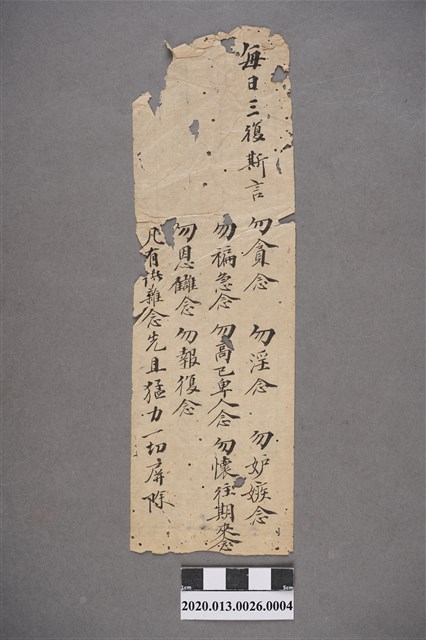 每日三復斯言 勿貪念 勿淫念 勿妒嫉念
勿褊急念 勿高己卑人念 勿懷往期來念
勿恩讎念 勿報復念
凡有此雜念先且猛力一切屏除
1cm 5cm
2020.013.0026.0004